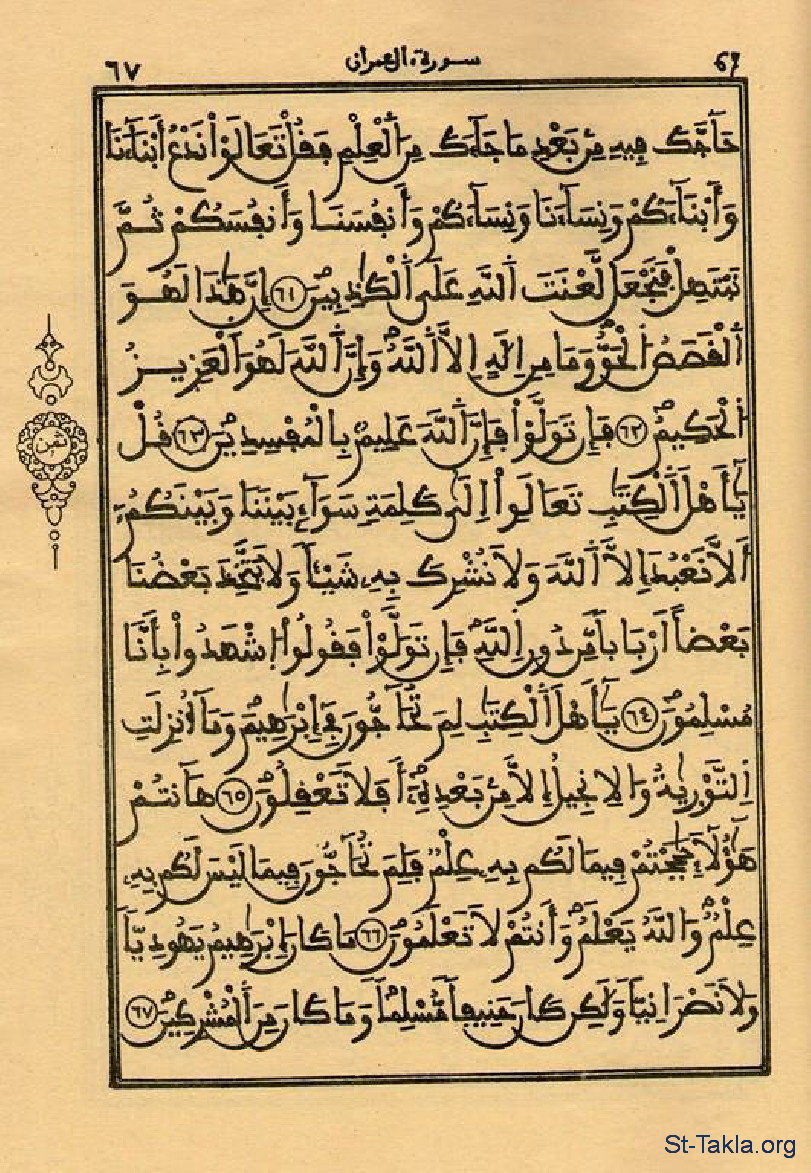 ٦٧ سورة ءال عمران 67
حَآجَّكَ فِيهِ مِنۢ بَعْدِ مَا جَآءَكَ مِنَ ٱلْعِلْمِ فَقُلْ تَعَالَوْاْ نَدْعُ أَبْنَآءَنَا
وَأَبْنَآءَكُمْ وَنِسَآءَنَا وَنِسَآءَكُمْ وَأَنفُسَنَا وَأَنفُسَكُمْ ثُمَّ
نَبْتَهِلْ فَنَجْعَل لَّعْنَتَ ٱللَّهِ عَلَى ٱلْكَٰذِبِينَ ٦١ إِنَّ هَٰذَا لَهُوَ
ٱلْقَصَصُ ٱلْحَقُّ وَمَا مِنِ اِلَٰهٍ اِلَّا ٱللَّهُ وَإِنَّ ٱللَّهَ لَهُوَ ٱلْعَزِيزُ
ٱلْحَكِيمُ ٦٢ فَإِن تَوَلَّوْاْ فَإِنَّ ٱللَّهَ عَلِيمٌۢ بِالْمُفْسِدِينَ ٦٣ قُلْ
يَٰٓأَهْلَ ٱلْكِتَٰبِ تَعَالَوِاْ اِلَىٰ كَلِمَةٍ سَوَآءِۢ بَيْنَنَا وَبَيْنَكُمُۥٓ
أَلَّا نَعْبُدَ إِلَّا ٱللَّهَ وَلَا نُشْرِكَ بِهِۦ شَيْـًٔا وَلَا يَتَّخِذَ بَعْضُنَا
بَعْضاً اَرْبَاباً مِّن دُونِ اِللَّهِ فَإِن تَوَلَّوْاْ فَقُولُواْ اُ۟شْهَدُواْ بِأَنَّا
مُسْلِمُونَ ٦٤ يَٰٓأَهْلَ ٱلْكِتَٰبِ لِمَ تُحَآجُّونَ فِىٓ إِبْرَٰهِيمَ وَمَآ أُنزِلَتِ
اِلتَّوْرَىٰةُ وَالِانجِيلُ إِلَّا مِنۢ بَعْدِهِۦٓ أَفَلَا تَعْقِلُونَ ٦٥ هَآنتُمْ
هَٰٓؤُلَآءِ حَٰجَجْتُمْ فِيمَا لَكُم بِهِۦ عِلْمٌ فَلِمَ تُحَآجُّونَ فِيمَا لَيْسَ لَكُم بِهِۦ
عِلْمٌ وَٱللَّهُ يَعْلَمُ وَأَنتُمْ لَا تَعْلَمُونَ ٦٦ مَا كَانَ إِبْرَٰهِيمُ يَهُودِيّاً
وَلَا نَصْرَانِيّاً وَلَٰكِن كَانَ حَنِيفاً مُّسْلِماً وَمَا كَانَ مِنَ ٱلْمُشْرِكِينَ ٦٧
ثمن
St-Takla.org